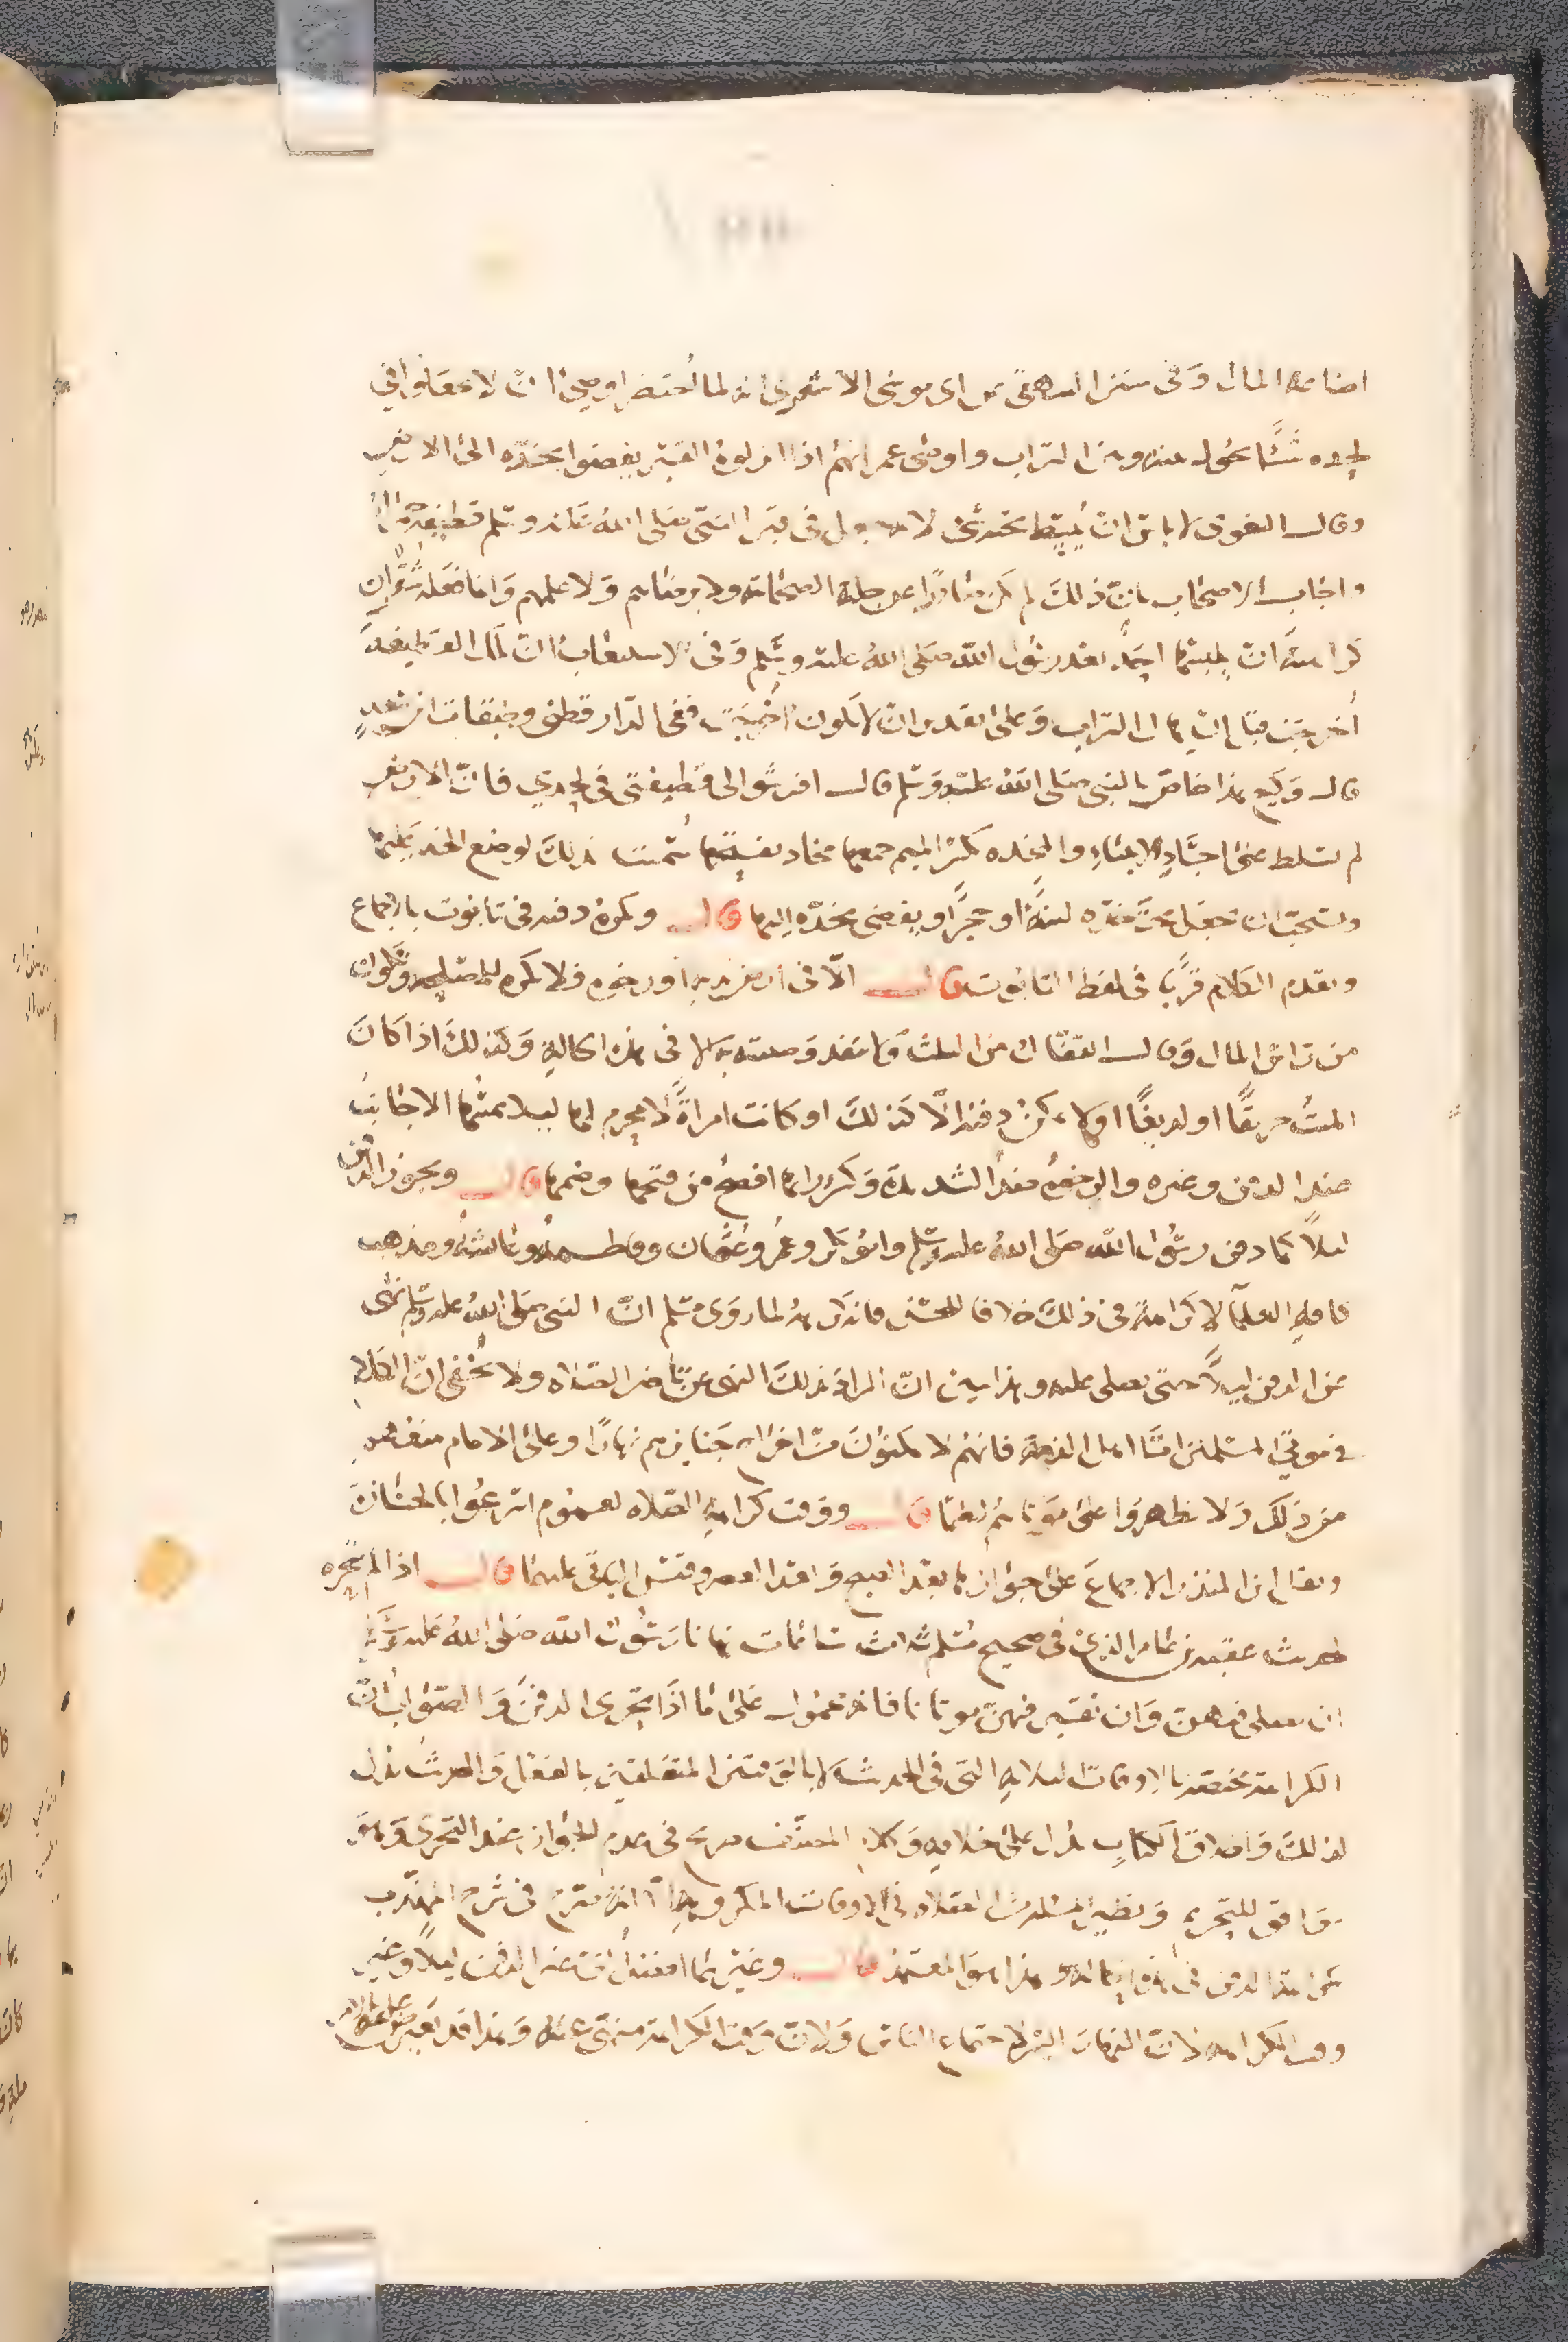 اضاعة المال وفى سنن البيهقى عن ابى موسى الاشعرى انه لما احتضر اوصى ان لا تجعلوا فى
لحده شيأ يحول بينه وبين التراب واوصى عمر انهم اذا انزلوه القبر يفضوا بخده الى الارض
وقال البغوى لا باس ان يبسط تحته شى لانه جعل فى قبر النبى صلى الله عليه وسلم قطيفة حمراء
واجاب الاصحاب بان ذلك لم يكن صادرا عن جملة الصحابة ولا برضاهم ولا علمهم وانما فعله شقران
كراهية ان يلبسها احد بعد رسول الله صلى الله عليه وسلم وفى الاستيعاب ان تلك القطيفة
اخرجت قبل ان يهال التراب وعلى تقدير ان لا تكون اخرجت ففى الدارقطنى وطبقات ابن سعد
قال وكيع هذا خاص بالنبى صلى الله عليه وسلم قال افرشوا لى قطيفتى فى لحدي فان الارض
لم تسلط على اجساد الانبياء والمخده بكسر الميم جمعها مخاد بفتحها سميت بذلك لوضع الخد عليها
ويستحب ان يجعل تحت خده لبنة او حجرا ويفضى بخده اليها قال ويكره دفنه فى تابوت بالاجماع
وتقدم الكلام قريبا فى لفظ التابوت قال الا فى ارض ندية او رخوه فلا يكره للمصلحه وتكون
من راس المال وقال القفال من الثلث ولا تنفذ وصيته به الا فى هذه الحالة وكذلك اذا كان
الميت حريقا او لديغا او لا يمكن دفنه الا كذلك او كانت امراة لا محرم لها ليلا يمسها الاجانب
عند الدفن وغيره والرخوه ضد الشديدة وكسر رائها افصح من فتحها وضمها قال ويجوز الدفن
ليلا كما دفن رسول الله صلى الله عليه وسلم وابو بكر وعمر وعثمان وفاطمه وعائشه ومذهب
كافة العلما لا كراهة فى ذلك خلافا للحسن فانه كرهه لما روى مسلم ان النبى صلى الله عليه وسلم نهى
عن الدفن ليلا حتى يصلى عليه وهذا يبين ان المراد بذلك النهى عن تاخير الصلاه ولا يخفى ان الكلام
فى موتى المسلمين اما اهل الذمة فانهم لا يمكنون من اخراج جنايزهم نهارا وعلى الامام منعهم
من ذلك ولا يظهروا على موتاهم لطما قال ووقت كراهة الصلاه لعموم اسرعوا بالجنازة
ونقل ابن المنذر الاجماع على جوازها بعد الصبح وبعد العصر وقيس الباقى عليهما قال اذا لم يتحره
لحديث عقبه بن عامر الذى فى صحيح مسلم ثلاث ساعات نهانا رسول الله صلى الله عليه وسلم
ان نصلى فيهن وان نقبر فيهن موتانا فانه محمول على ما اذا تحرى الدفن والصواب ان
الكراهة مختصة بالاوقات الثلاثة التى فى الحديث لا بالوقتين المتعلقين بالفعل والحديث يدل
لذلك واطلاق الكتاب يدل على خلافه وكلام المصنف صريح فى عدم الجواز عند التحرى وهو
موافق للتحريم ونظير المسئلة الصلاه فى الاوقات المكروهة الا انه صرح فى شرح المهذب
بكراهة الدفن فى هذه الحالة وهذا هو المعتمد قال وغيرهما افضل اى غير الدفن ليلا وغير
وقت الكراهه لان النهار ايسر لاجتماع الناس ولان وقت الكراهة منهى عنه وهذا قد اعترض عليه